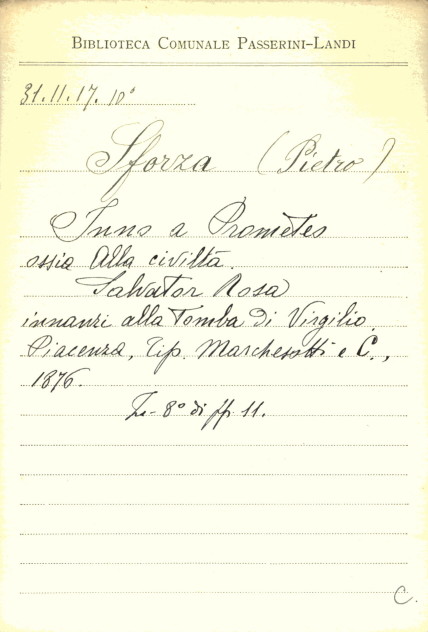 BIBLIOTECA COMUNALE PASSERINI-LANDI
31.11.17. 10°
Sforza (Pietro)
Inno a Prometeo
ossia Alla civiltà.
Salvator Rosa
innanzi alla Tomba di Virgilio.
Piacenza, Tip. Marchesotti e C.,
1876.
In-8° di pp. 11.
C.